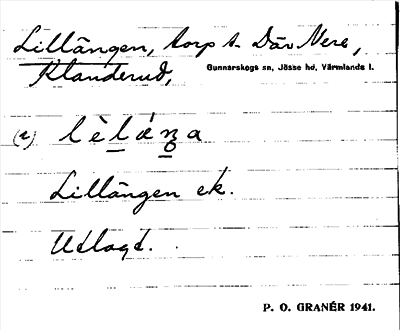 Lillängen, torp t. Där Nere,
Klanderud,
Gunnarskogs sn, Jösse hd, Värmlands l.
Lillängen ek.
Utlagd.
P. O. GRANÉR 1941.